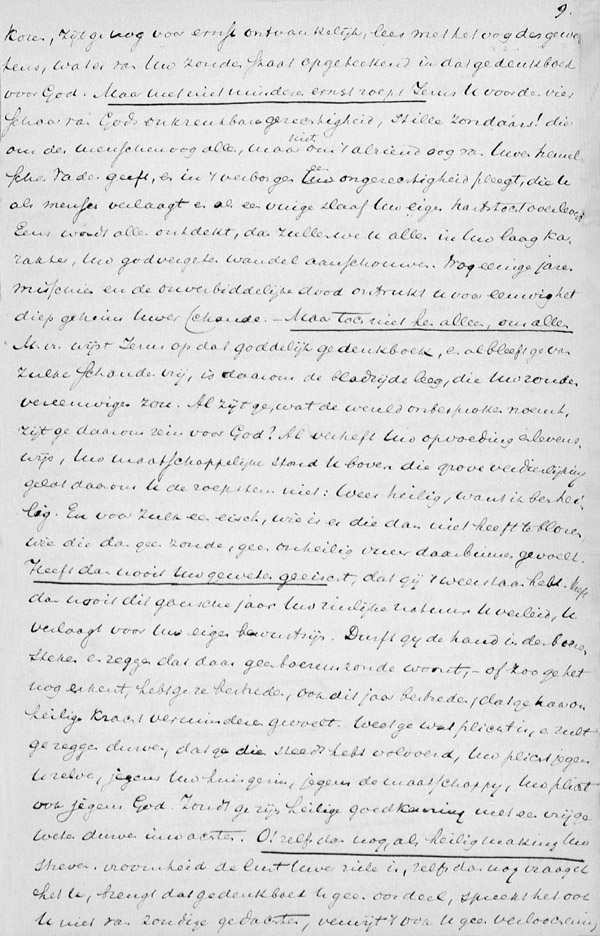 9.
koren, zijt ge nog voor ernst ontvankelijk, lees met het oog des gewe-
tens, wat er van Uw zonden staat opgeteekend in dat gedenkboek
voor God. Maar met niet minderen ernst roept Jezus U voor de vier-
schaar van Gods onkreukbare gerechtigheid, stille zondaars! die
om des menschen oog alles, maar om 't alziend oog van Uwen hemel-
schen Vader niets geeft, en in 't verborgen Uw ongerechtigheid pleegt, die U
als mensch verlaagt en als een vuige slaaf Uw eigen hartstocht overlevert.
Eens wordt alles ontdekt, dan zullen we U allen in Uw laag ka-
rakter, Uw godvergeten wandel aanschouwen. Nog eenige jaren
misschien en de onverbiddelijke dood ontrukt U voor eeuwig het
diep geheim Uwer schande. - Maar toch niet hen alleen, ons allen
M. vr. wijst Jezus op dat goddelijk gedenkboek, en al bleeft ge van
zulke schande vrij, is daarom de bladzijde leeg, die Uw zonden
vereeuwigen zou. Al zijt ge, wat de wereld onbesproken noemt,
zijt ge daarom rein voor God? Al verheft Uw opvoeding en levens-
wijs, Uw maatschappelijke stand U boven die grove verdierlijking
geldt daarom U de roepstem niet: Wees heilig, want ik ben hei-
lig. En voor zulk een eisch, wie is er die dan niet heeft te blozen
wie die dan geen zonde, geen onheilig vuur daarbinnen gevoelt.
Heeft dan nooit Uw geweten geëischt, dat gij 't weerstaan hebt. Heeft
dan nooit dit gansche jaar Uw zinlijke natuur U verleid, U
verlaagt voor Uw eigen bewustzijn. Durft gij de hand in den boezem
steken en zeggen dat daar geen boezemzonde woont, - of zoo ge het
nog erkent, hebt ge ze bestreden, ook dit jaar bestreden, dat ge haar on-
heilige kracht verminderen gevoelt. Weet ge wat plicht is, en zult
ge zeggen durven, dat ge die steeds hebt volvoerd, Uw plicht jegens
Uzelven, jegens Uw huisgezin, jegens de maatschappij, Uw plicht
ook jegens God. Zoudt ge zijn heilige goedkeuring met een vrij ge-
weten durven inwachten. O! zelfs dan nog, als heiligmaking Uw
streven, vroomheid de lust Uwer ziele is, zelfs dan nog vraag ik
het U, brengt dat gedenkboek U geen oordeel, spreekt het ook
U niet van zondige gedachten, verwijt 't ook U geen verloochening